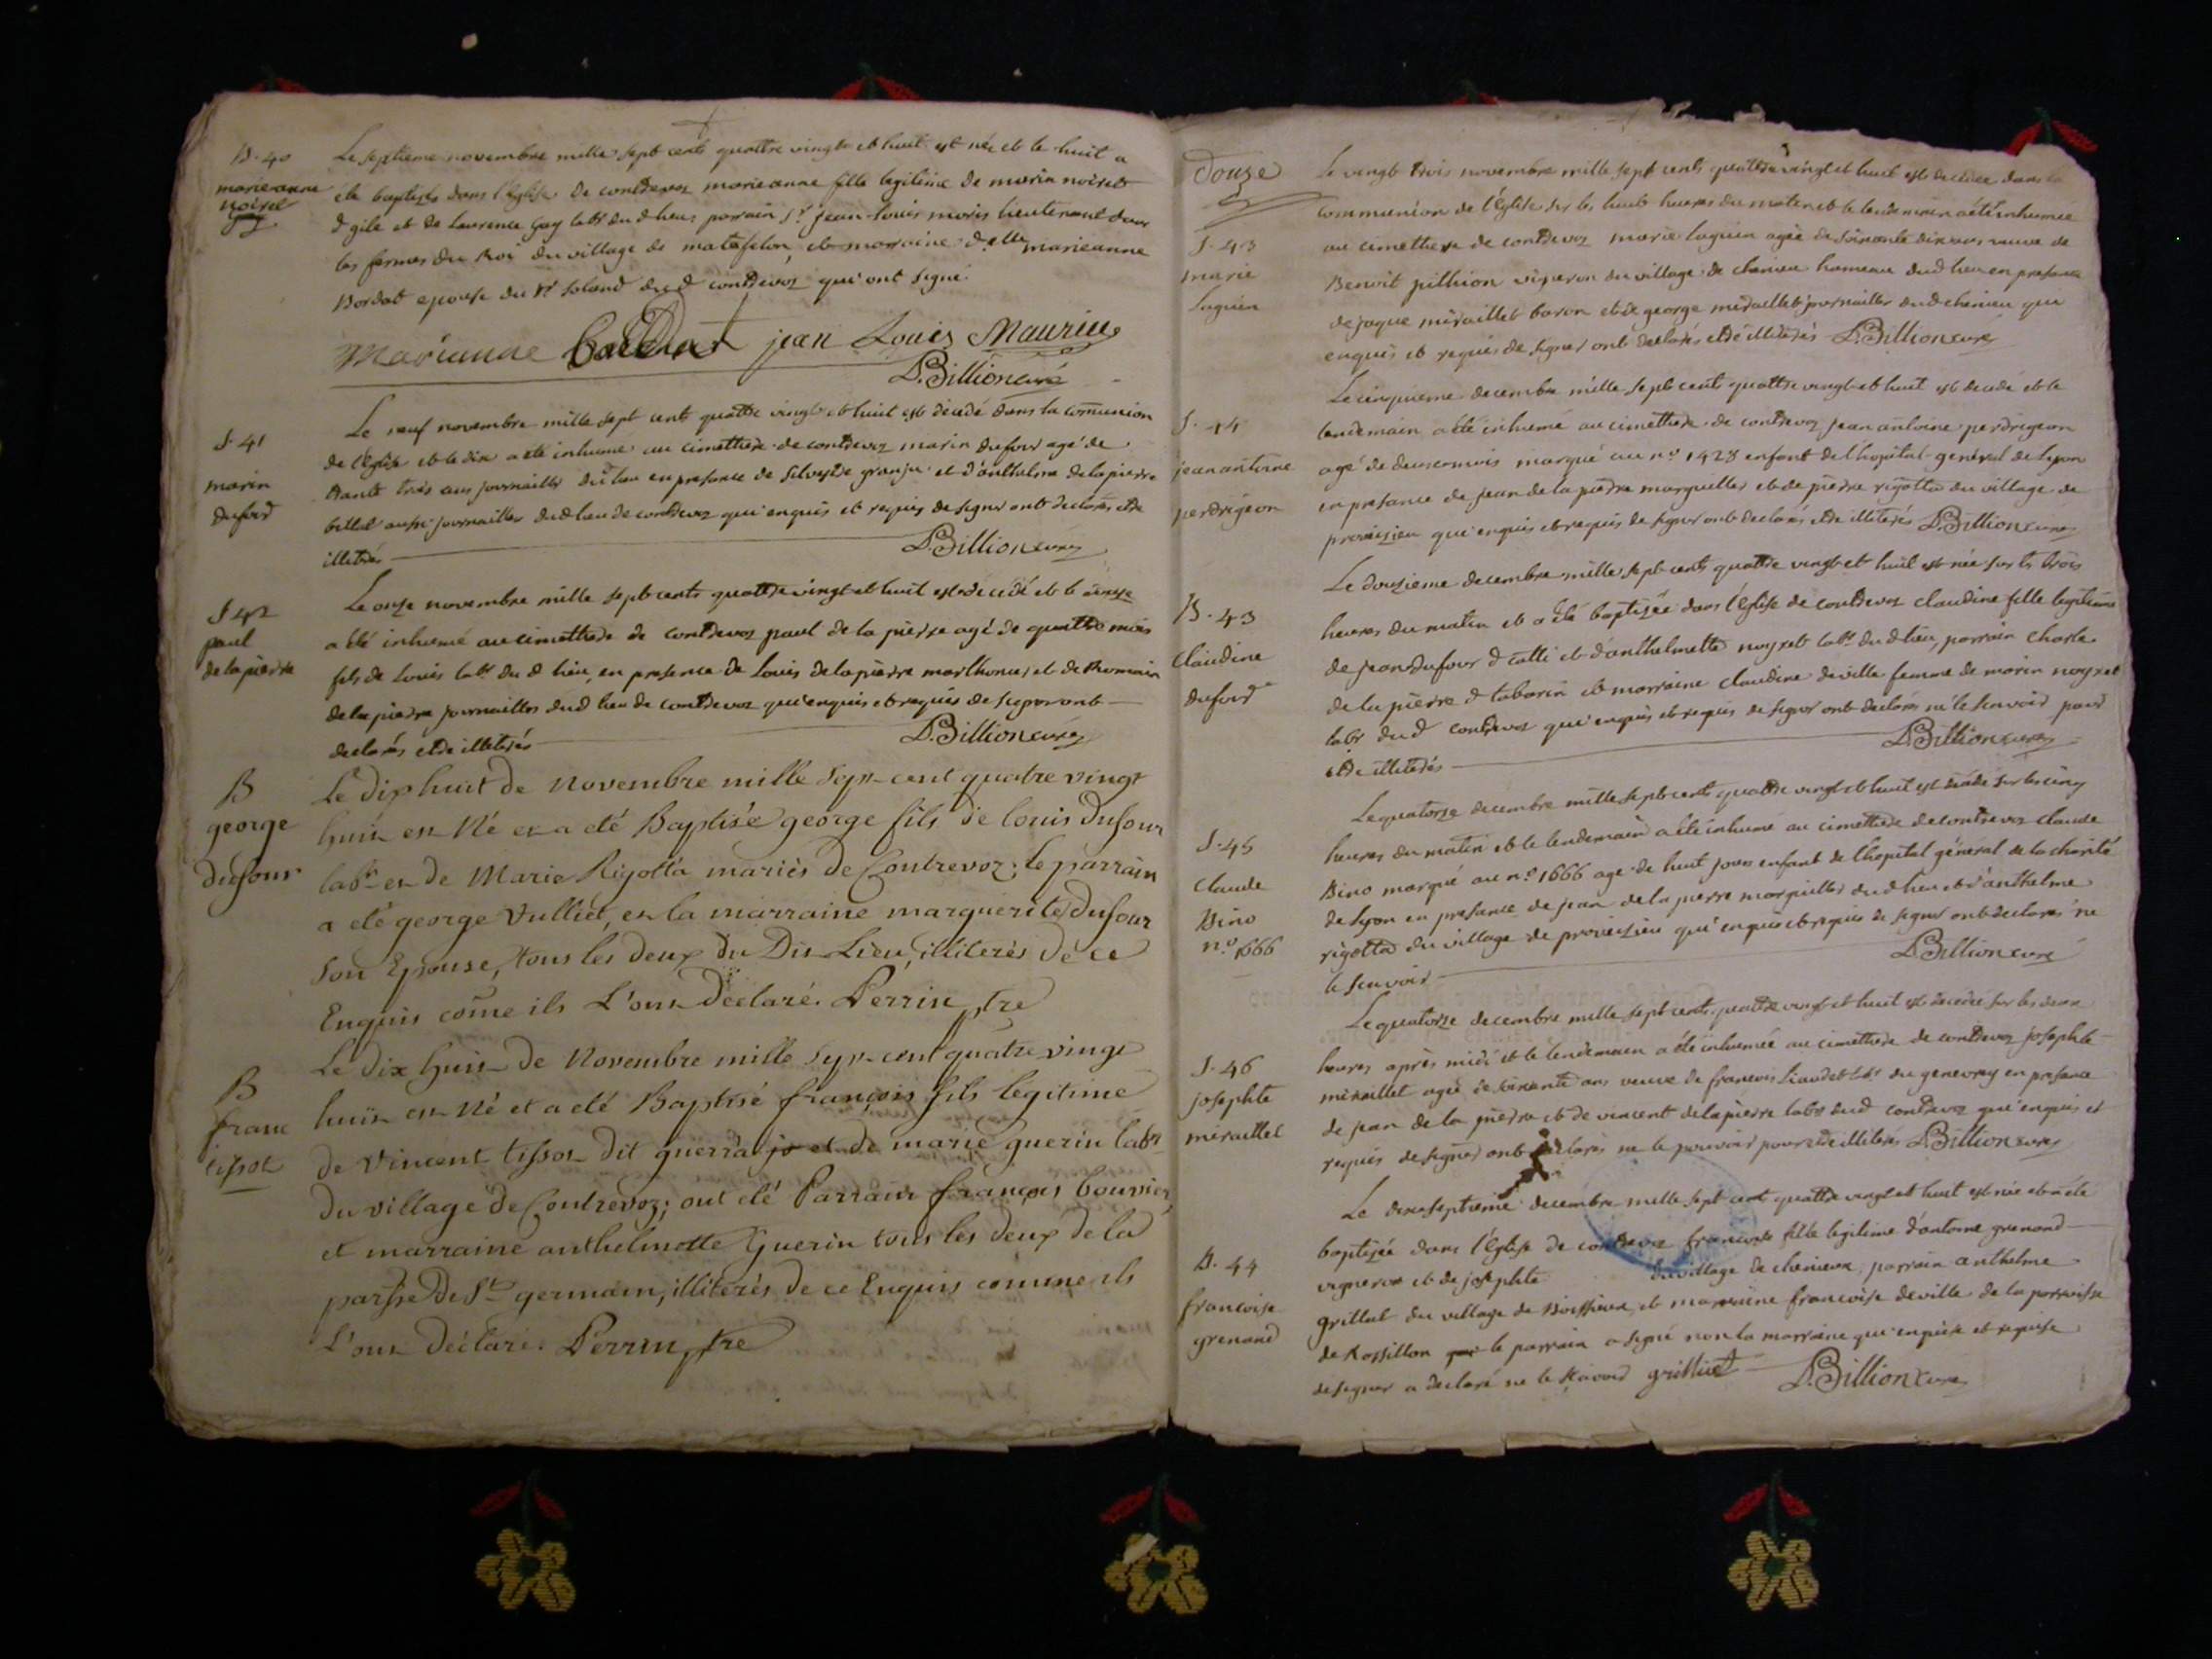 B. 40
marieanne
noiret
Le septieme novembre mille sept cents quattre vingts et huit est née et le huit a
été baptisée dans l'Eglise de contrevoz marieanne fille legitime de marin noiret
d gile et de Laurence Gay labr du d lieu, parrain Sr jean louis moris lieutenant dans
les fermes du Roi du village de matafelon, et marraine d.elle marieanne
Bordat epouse du Sr Soland du d contrevoz qui ont signé.
Marianne jean Louis Maurice
D. Billion curé
S. 41
marin
dufour
Le neuf novembre mille sept cents quattre vingts et huit est décédé dans la comunion
de l'Eglise et le dix a été inhumé au cimettiere de contrevoz marin dufour agé de
trante trois ans journaillier du lieu en presance de Silvestre granju et d'anthelme delapierre
billat aussi journaillier dud lieu de contrevoz qui enquis et requis de signer ont declarés etre
illitérés
D. Billion curé
S 42
paul
delapierre
Le onze novembre mille sept cents quattre vingt et huit est decédé et le douze
a été inhumé au cimettiere de contrevoz paul de la pierre agé de quattre mois
fils de Louis labr du d lieu, en presence de Louis delapierre marlhoney et de Romain
delapierre journaillier dud lieu de contrevoz qui enquis et requis de signer ont
declarés etre illetérés
D. Billion curé
B
george
dufour
Le dix huit de Novembre mille Sept cent quatre vingt
huit est Né et a eté Baptisé george fils de louis Dufour
labr et de Marie Rigotta mariés de Contrevoz; le parrain
a eté george Vulliet, et la marraine marguerite Dufour
Son Epouse, tous les deux du Dit Lieu, illiterés de ce
Enquis come ils L'ont Déclaré. Perrin ptre
B
franc
tissot
Le dix huit de Novembre mille Sept cent quatre vingt
huit est Né et a eté Baptisé françois fils legitime
de Vincent tissot dit guerra jo et de marie guerin labr
du village de Contrevoz; ont eté Parrain françois bouvier,
et marraine anthelmette Guerin tous les deux de la
parsse de St germain, illiterés de ce Enquis comme ils
L'ont Déclaré. Perrin ptre
Douze
S. 43
marie
laguin
Le vingt trois novembre mille sept cents quattre vingt et huit est decedée dans la
communion de l'Eglise sur les huit heures du matin et le lendemain a été inhumée
au cimettiere de contrevoz marie laguin agée de soixante dix ans veuve de
Benoit pillion vigneron du village de cheinieu hameau dud lieu en presance
de jaque miraillet baron et de george miraillet journaillier dud cheinieu qui
enquis et requis de signer ont declarés etre illiterés D. Billion curé
S. 44
jean antoine
perdrigeon
Le cinquieme decembre mille sept cents quattre vingt et huit est decedé et le
lendemain a été inhumé au cimettiere de contrevoz jean antoine perdrigeon
agé de deux mois marqué au no 1428 enfant de l'hopital general de lyon
en presance de jean de la pierre marguillier et de pierre rigotta du village de
proveisieu qui enquis et requis de signer ont declarés etre illiterés D. Billion curé
B. 43
claudine
dufour
Le douzieme decembre mille sept cents quattre vingt et huit est née sur les trois
heures du matin et a été baptisée dans l'Eglise de contrevoz claudine fille legitime
de jean dufour d catti et d'anthelmette noyret labr du d lieu, parrain charle
de la pierre d tabarin et marraine claudine deville femme de marin noyret
labr dud contrevoz qui enquis et requis de signer ont declarés ne le scavoir pour
etre illiterés
D. Billion curé
S. 45
claude
Bino
no. 1666
Le quatorze decembre mille sept cents quattre vingt et huit est decedé sur les cinq
heures du matin et le lendemain a été inhumé au cimettiere de contrevoz claude
Bino marqué au no. 1666 agé de huit jours enfant de l'hopital général de la charité
de lyon en presance de jean de la pierre marguillier dud lieu et d'anthelme
rigotta du village de proveisieu qui enquis et requis de signer ont declarés ne
le scavoir
D. Billion curé
S. 46
josephte
miraillet
Le quatorze decembre mille sept cents quattre vingt et huit est decedée sur les deux
heures après midi et le lendemain a été inhumée au cimettiere de contrevoz josephte
miraillet agée de soixante ans veuve de francois liaudet labr du genevray en presance
de jean de la pierre et de vincent delapierre labr dud contrevoz qui enquis et
requis de signer ont declarés ne le pouvoir pour etre illiterés D. Billion curé
B. 44
francoise
grenand
Le dixseptieme decembre mille sept cent quattre vingt et huit est née et a été
baptizée dans l'Eglise de contrevoz francoise fille legitime d'antoine grenand
vigneron et de josephte du village de cheinieux, parrain anthelme
grillat du village de Boissieux, et marraine francoise deville de la parroisse
de Rossillon que le parrain a signé non la marraine qui enquise et requise
de signer a declaré ne le scavoir grilliet D. Billion curé